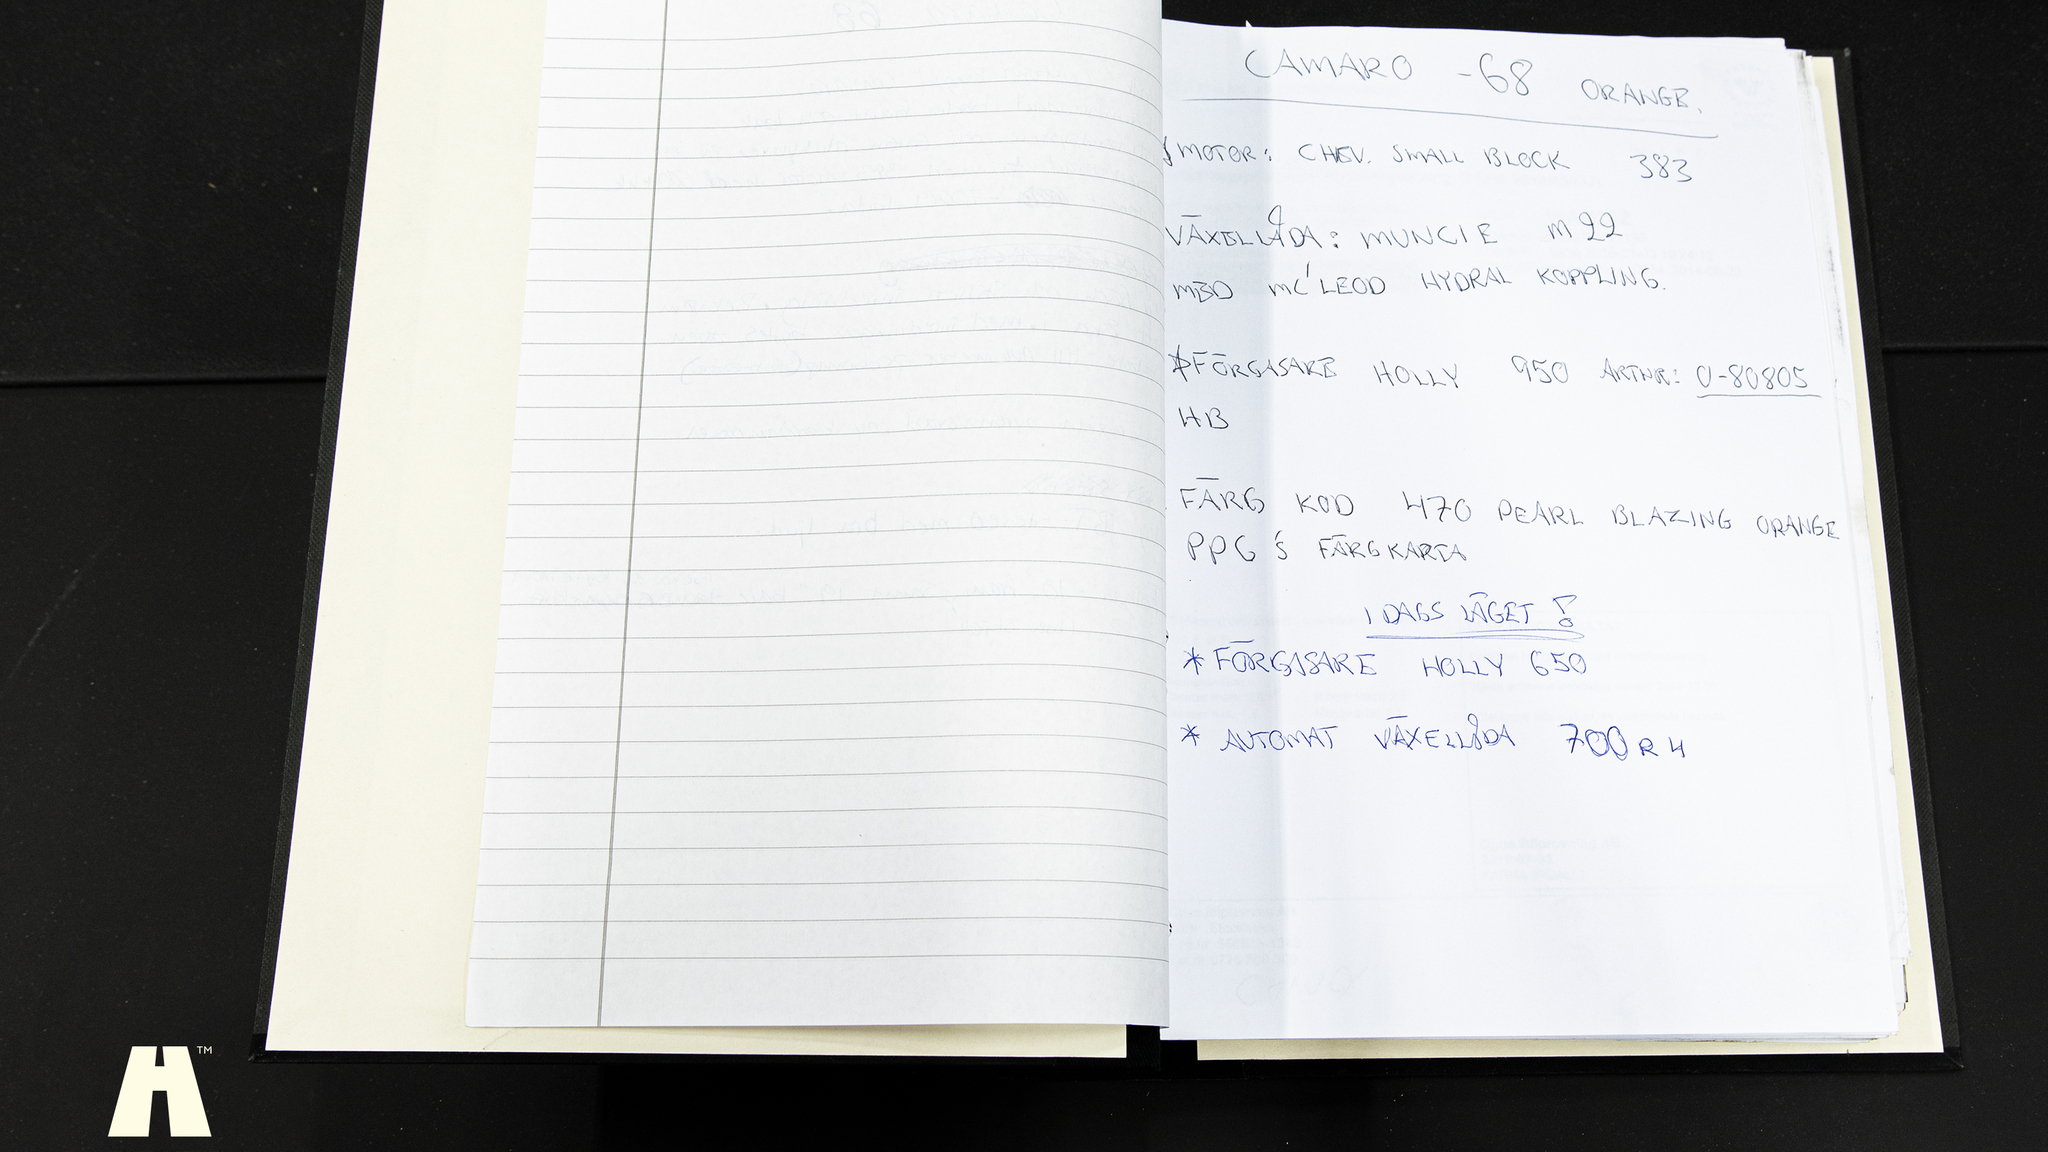 CAMARO -68 ORANGE.
*MOTOR: CHEV. SMALL BLOCK 383
VÄXELLÅDA: MUNCIE M22
MED MC'LEOD HYDRAL KOPPLING.
*FÖRGASARE HOLLY 950 ARTNR: 0-80805
HB
FÄRG KOD 470 PEARL BLAZING ORANGE
PPG'S FÄRGKARTA
I DAGS LÄGET !
* FÖRGASARE HOLLY 650
* AUTOMAT VÄXELLÅDA 700 R 4
H™